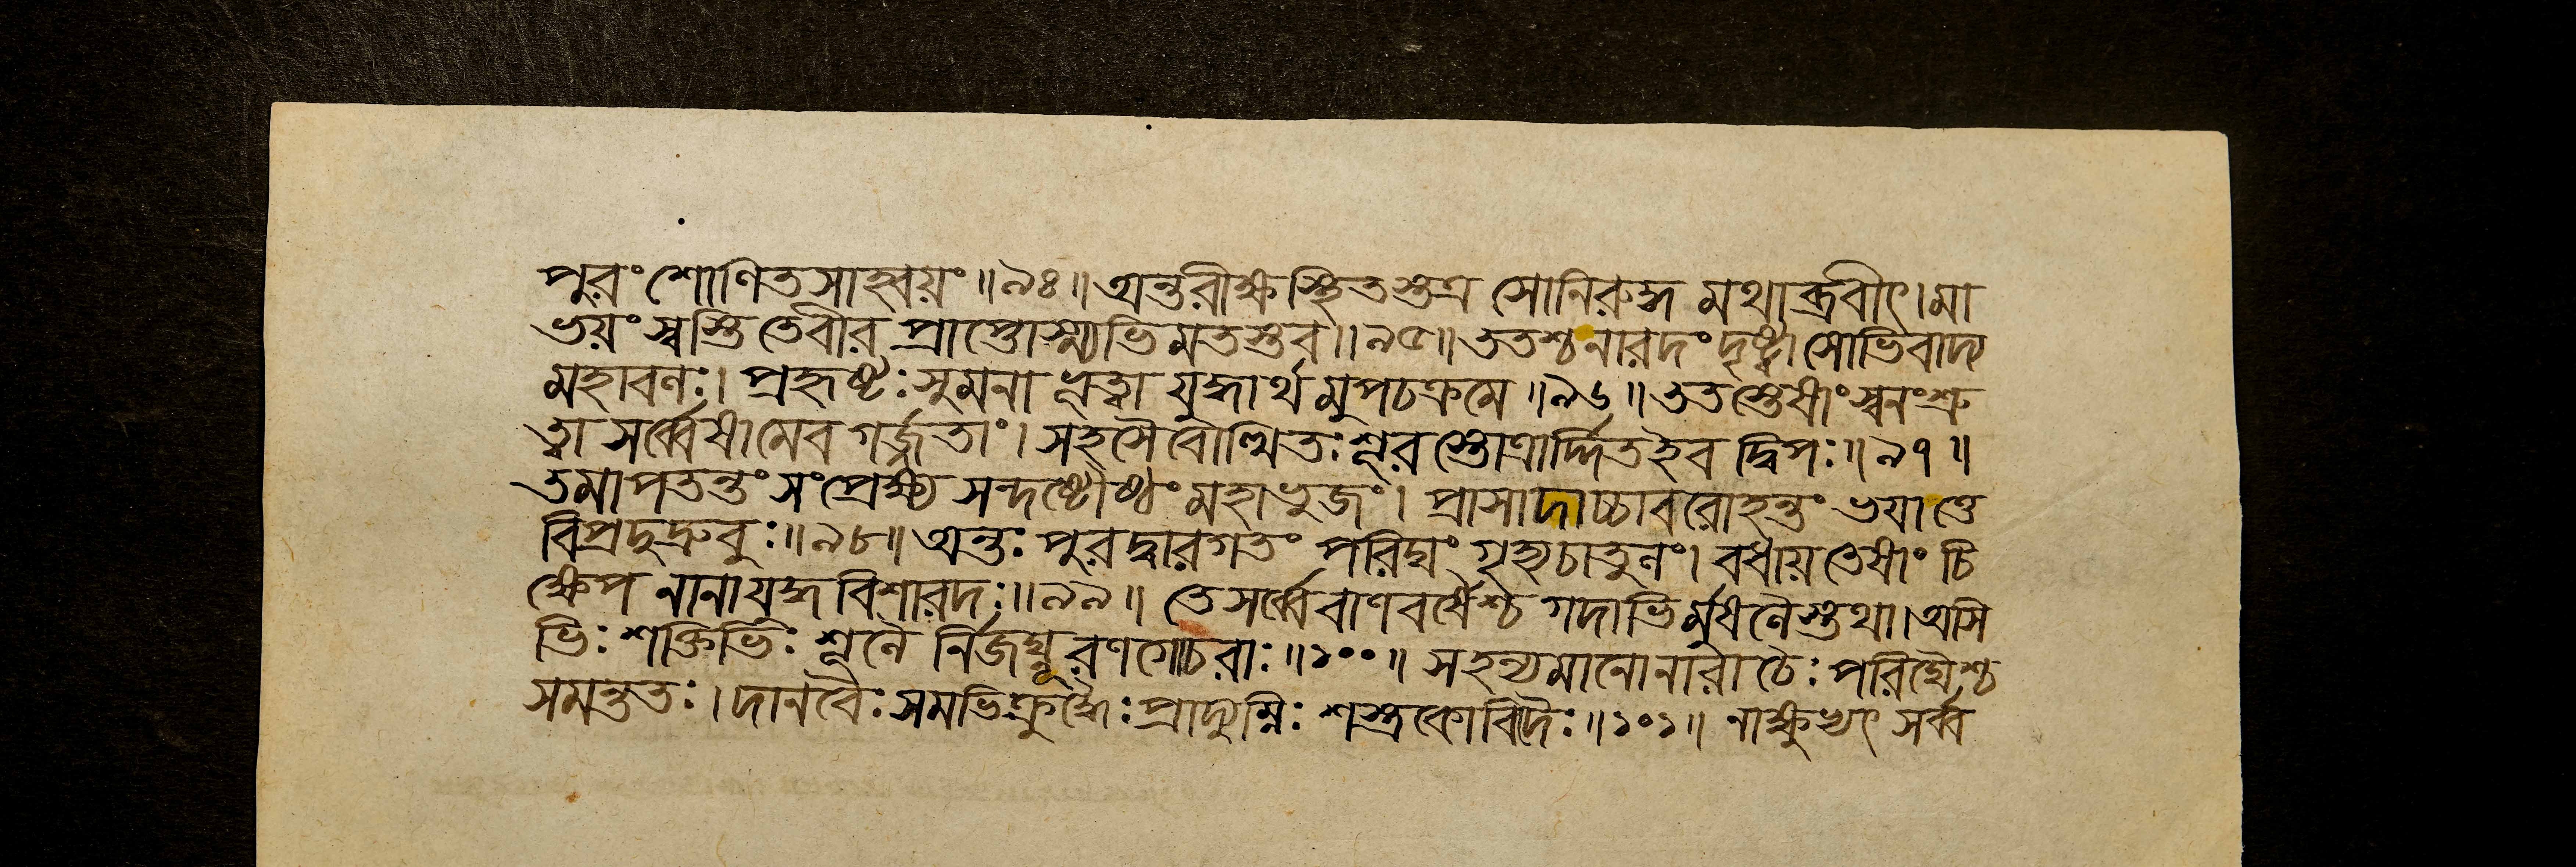 পুরং শোণিতসাহ্বয়ং॥৯৪॥অন্তরীক্ষস্থিতস্তত্র সোনিরুদ্ধ মথাব্রবীৎ।মা
ভয়ং স্বস্তি তেবীর প্রাপ্তোস্ম্যভিমতস্তব॥৯৫॥ততশ্চনারদং দৃষ্ট্বা সোভিবাদ্য
মহাবলঃ। প্রহৃষ্টঃ সুমনা ভূত্বা যুদ্ধার্থ মুপচক্রমে॥৯৬॥ততস্তেষাং স্বনং শ্রু
ত্বা সর্ব্বেষামেব গর্জ্জতাং। সহসৈবোত্থিতঃ শূর স্তোত্রার্দ্দিতইব দ্বিপঃ॥৯৭॥
তমাপতন্তং সংপ্রেক্ষ্য সন্দষ্টৌষ্ঠং মহাভুজং। প্রাসাদাচ্চাবরোহন্তং ভয়াত্তে
বিপ্রদুদ্রুবুঃ॥৯৮॥অন্তঃ পুরদ্বারগতং পরিঘং গৃহ্যচাতুলং। বধায়তেষাং চি
ক্ষেপ নানাযুদ্ধ বিশারদঃ॥৯৯॥ তে সর্ব্বে বাণবর্ষৈশ্চ গদাভির্মুষলৈস্তথা।অসি
ভিঃ শক্তিভিঃ শূলৈ র্নিজঘ্নূ রণগোচরাঃ॥১০০॥ সহন্যমানোনারাচৈঃ পরিঘৈশ্চ
সমন্ততঃ। দানবৈঃ সমভিক্রুদ্ধৈঃ প্রাদ্যুম্নিঃ শস্ত্রকোবিদৈঃ॥১০১॥ নাক্ষুভ্যৎ সর্ব্ব